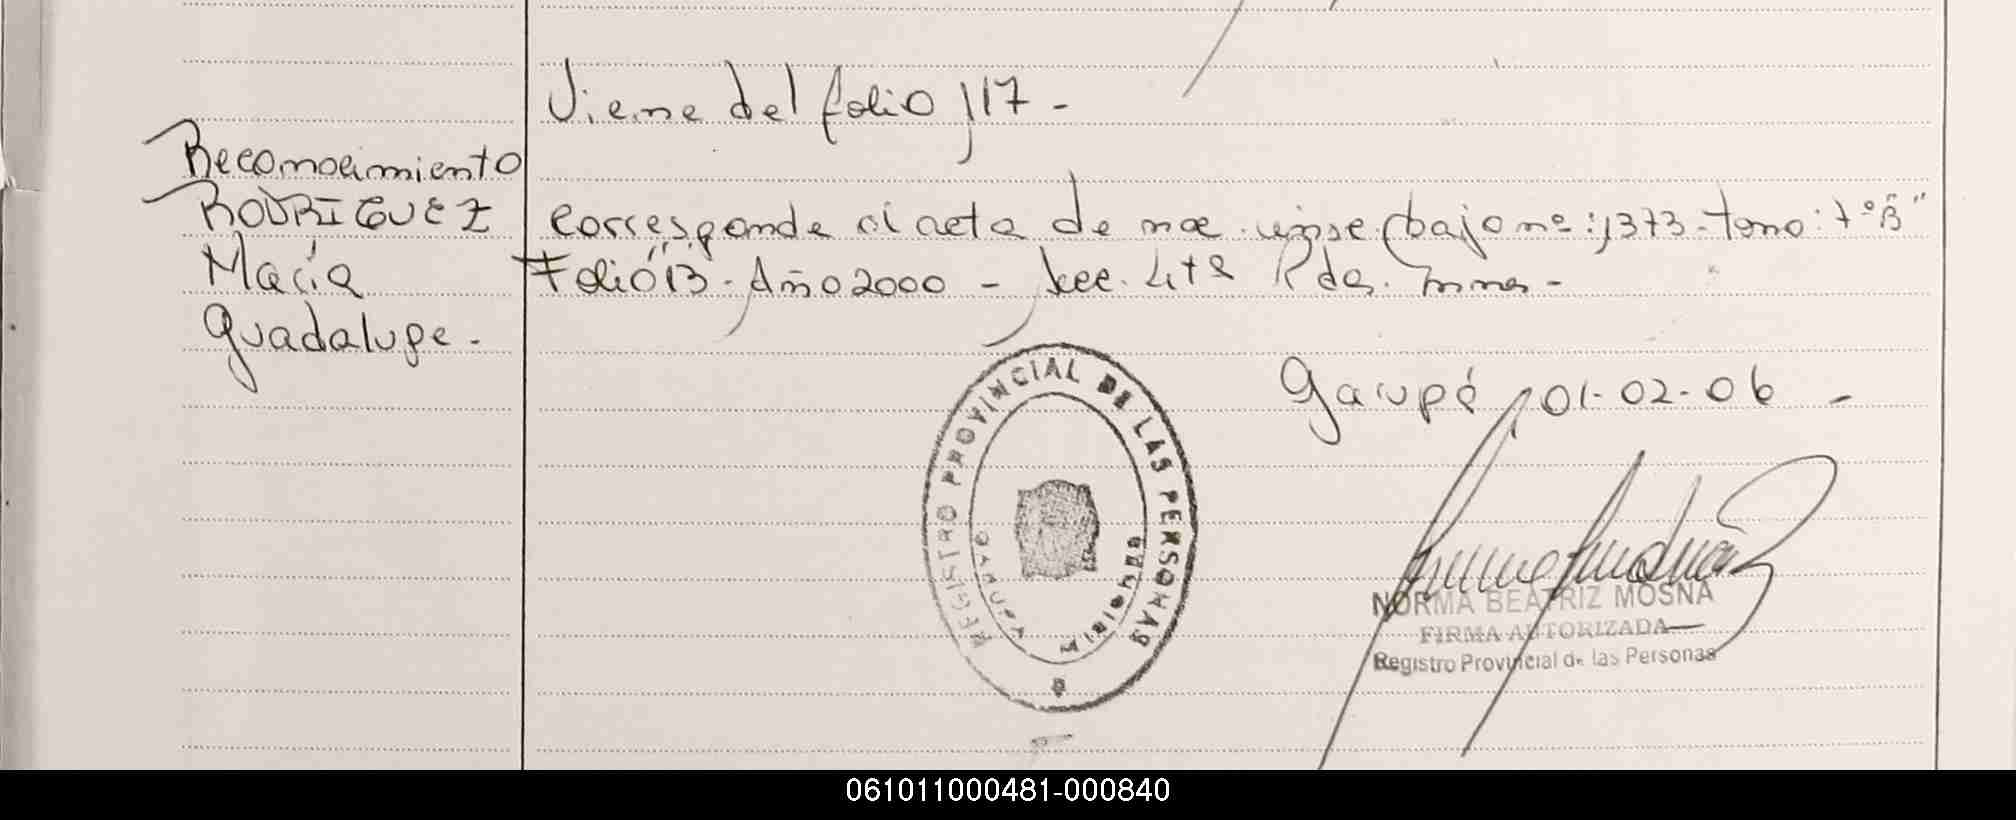 Viene del folio 117 -
Reconocimiento
RODRIGUEZ
María
Guadalupe.-
Corresponde al acta de nac. inser bajo nº: 1373 - tomo: 7º "B"
Folio 13 - Año 2000 - Sec. 4ta Pdas. Mnes -
Garupá, 01-02-06 -
REGISTRO PROVINCIAL DE LAS PERSONAS
GARUPA
MISIONES
NORMA BEATRIZ MOSNA
FIRMA AUTORIZADA
Registro Provincial de las Personas
061011000481-000840